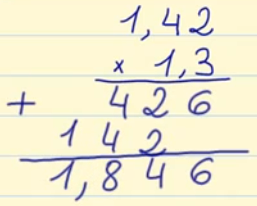 1,42
× 1,3
+ 426
142
1,846